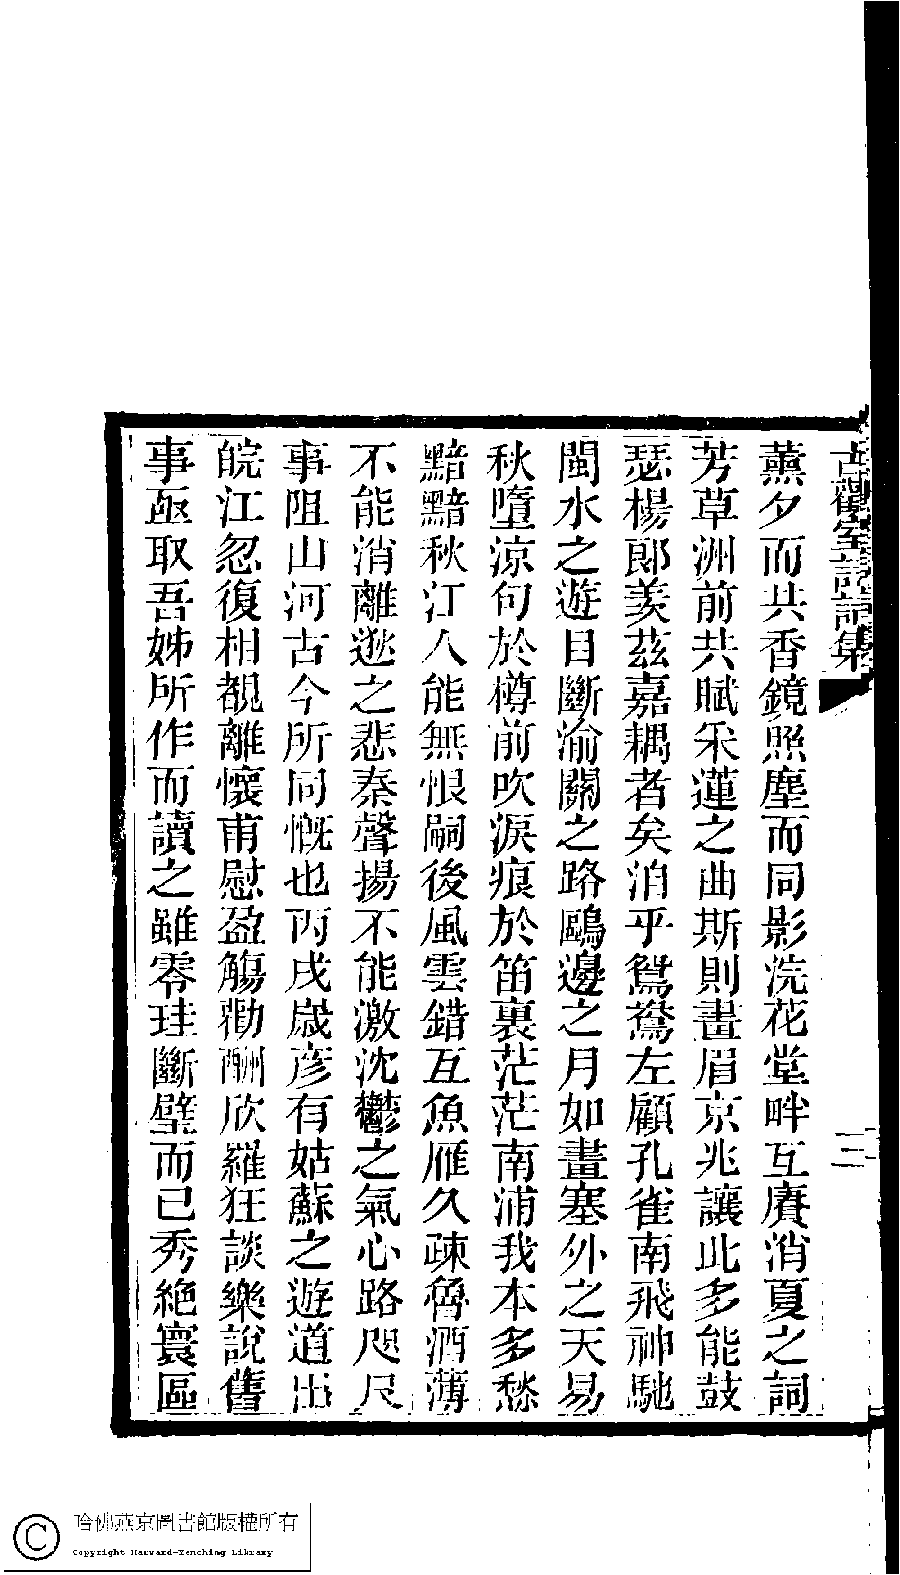 薰夕而共香鏡照塵而同影浣花堂畔互賡消夏之詞
芳草洲前共賦采蓮之曲斯則畫眉京兆讓此多能鼓
瑟楊郎羨茲嘉耦者矣洎乎鴛鴦左顧孔雀南飛神馳
閩水之遊目斷渝關之路鷗邊之月如晝塞外之天易
秋墮涼句於樽前吹淚痕於笛裏茫茫南浦我本多愁
黯黯秋江人能無恨嗣後風雲錯互魚雁久疎魯酒薄
不能消離逖之悲秦聲揚不能激沈鬱之氣心路咫尺
事阻山河古今所同慨也丙戌歲彥有姑蘇之遊道出
皖江忽復相覩離懷甫慰盈觴勸酬欣羅狂談樂說舊
事亟取吾姊所作而讀之雖零珪斷璧而已秀絶寰區
三
哈佛燕京圖書館版權所有
Copyright Harvard-Yenching Library